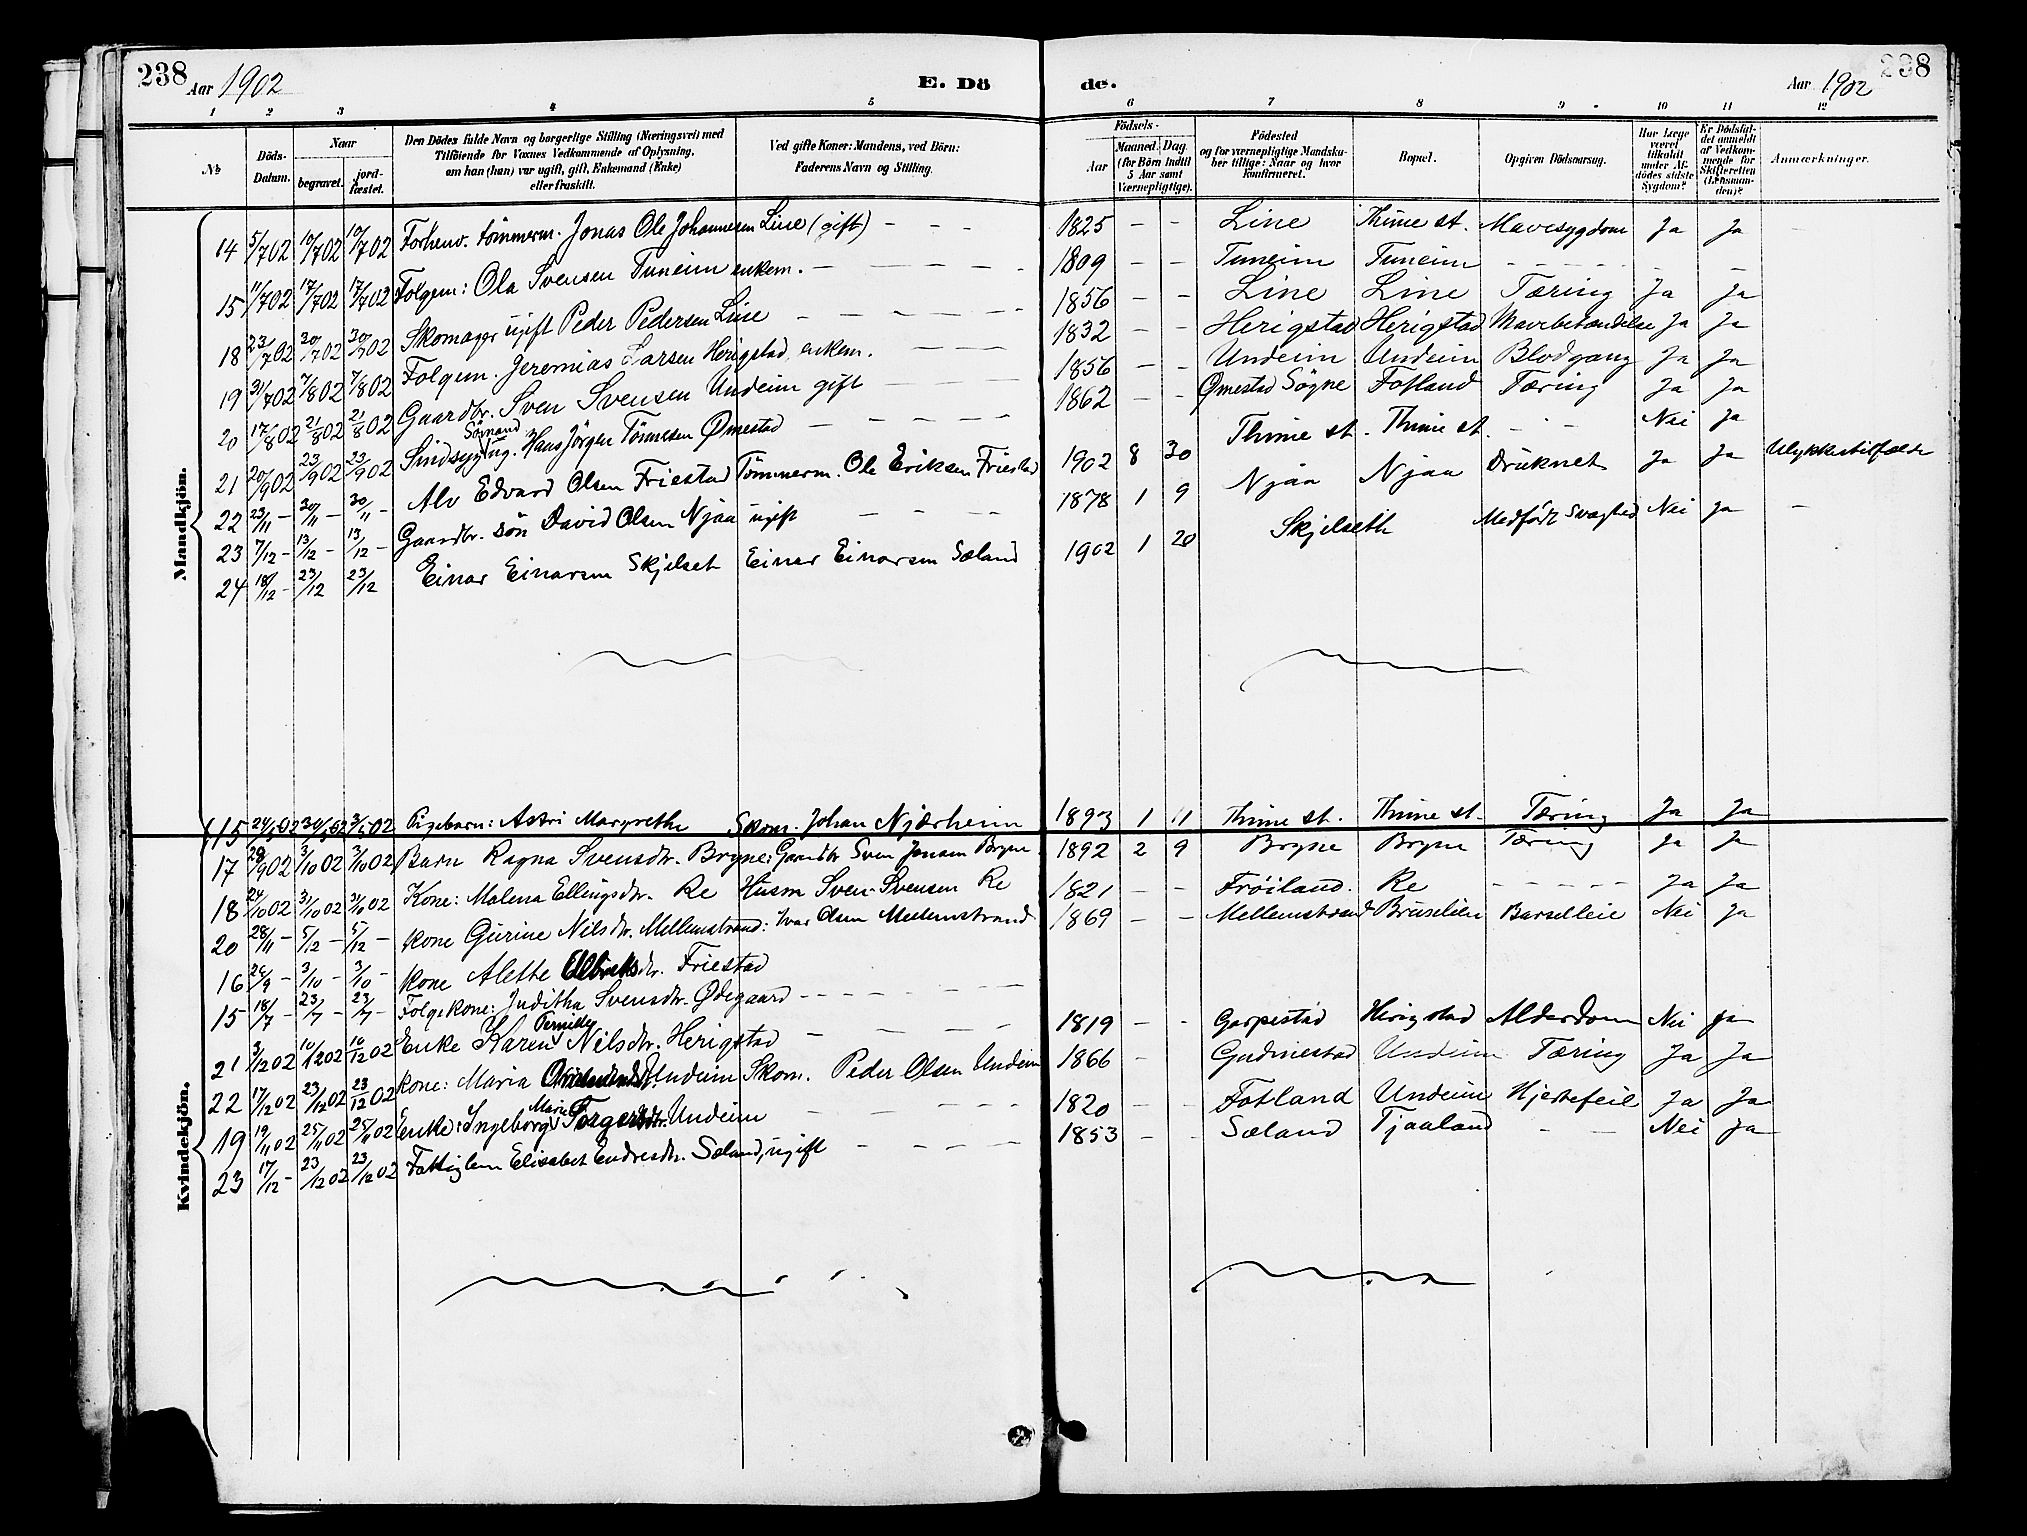 238 Aar 1902 E. Dö de. Aar 1902 238
1 2 3 4 5 6 7 8 9 10 11 12
№ Döds-Datum. Naar begravet. jordfæstet. Den Dödes fulde Navn og borgerlige Stilling (Næringsvei) med Tilföiende for Voxnes Vedkommende af Oplysning, om han (hun) var ugift, gift, Enkemand (Enke) eller fraskilt. Ved gifte Koner: Mandens, ved Börn: Faderens Navn og Stilling. Födsels- Aar Maaned. Dag. (for Börn indtil 5 Aar samt Værnepligtige). Födested og for værnepligtige Mandskaber tillige: Naar og hvor konfirmeret. Bopæl. Opgiven Dödsaarsag. Har Læge været tilkaldt under Afdödes sidste Sygdom? Er Dödsfaldet anmeldt af Vedkommende for Skifteretten (Lensmanden)? Anmærkninger.
Mandkjön.
14 5/7 02 10/7 02 10/7 02 Forhenv. tömmerm. Jonas Ole Johannesen Line (gift) - - - 1825 - - Line Thime st. Mavesygdom Ja Ja -
15 11/7 02 17/7 02 17/7 02 Folgem: Ola Svensen Tuneim enkem. - - - - - 1809 - - Tuneim Tuneim - - - - - -
18 23/7 02 30/7 02 30/7 02 Skomager ugift Peder Pedersen Line - - - - - 1856 - - Line Line Tæring Ja Ja
19 31/7 02 7/8 02 7/8 02 Folgem. Jeremias Larsen Herigstad, enkem. - - - 1832 - - Herigstad Herigstad Mavebetændelse Ja Ja
20 17/8 02 21/8 02 21/8 02 Gaardbr. Sven Svensen Undeim gift - - - - 1856 - - Undeim Undeim Blodgang Ja Ja
21 20/9 02 23/9 02 23/9 02 Sindssyg Sömand ug. Hans Jörgen Tönnesen Ømestad - - - - - 1862 - - Ømestad Søgne Fotland Tæring Ja Ja
22 23/11 - 30/11 - 30/11 - Alv Edvard Olsen Friestad Tömmerm. Ole Eriksen Friestad 1902 8 30 Thime st. Thime st. - - - Nei Ja
23 7/12 - 13/12 - 13/12 - Gaardbr. sön David Olsen Njaa ugift - - - - 1878 1 9 Njaa Njaa Druknet Ja Ja Ulykkestilfælde
24 18/12 - 23/12 23/12 Einar Einarsen Skjelset Einar Einarsen Sæland 1902 1 20 Skjelseth Medfödt Svaghed Nei Ja -
Kvindekjön.
15 3/5 02 Pigebarn: Astri Margrethe Skom. Johan Njærheim 1893 1 11 Thime st. Thime st. Tæring Ja Ja
17 28/9 02 3/10 02 3/10 02 Barn Ragna Svensdtr. Bryne: Gaardbr Sven Jonsen Bryne 1892 2 9 Bryne Bryne Tæring Ja Ja
18 24/10 02 31/10 02 31/10 02 Kone: Malena Ellingsdtr. Re Husm Sven Svensen Re 1821 - - Frøiland. Re - - - - - Ja Ja
20 28/11 - 5/12 - 5/12 - Kone Gurine Nilsdtr. Mellemstrand: Ivar Olsen Mellemstrand 1869 - - Mellemstrand Bruselien Barselleie Nei Ja
16 26/9 - 3/10 - 3/10 - Kone Alethe Friestad
15 18/7 - 23/7 - 23/7 - Folgekone: Juditha Svensdtr. Ødegaard - - - - - -
21 3/12 02 10/12 02 10/12 02 Enke Karen Pernille Nilsdtr. Herigstad - - - - - 1819 - - Garpestad Herigstad Alderdom Nei Ja
22 17/12 02 23/12 02 23/12 02 Kone: Maria Undeim Skom. Peder Olsen Undeim 1866 - - Gudmestad Undeim Tæring Ja Ja
19 19/11 02 25/11 02 25/11 02 Enke: Ingeborg Marie Torgersdtr. Undeim - - - - 1820 - - Fotland Undeim Hjertefeil Ja Ja
23 17/12 - 23/12 02 23/12 02 Fattiglem Elisabet Endresdtr. Sæland, ugift - - - - 1853 - - Sæland Tjaaland - - Nei Ja